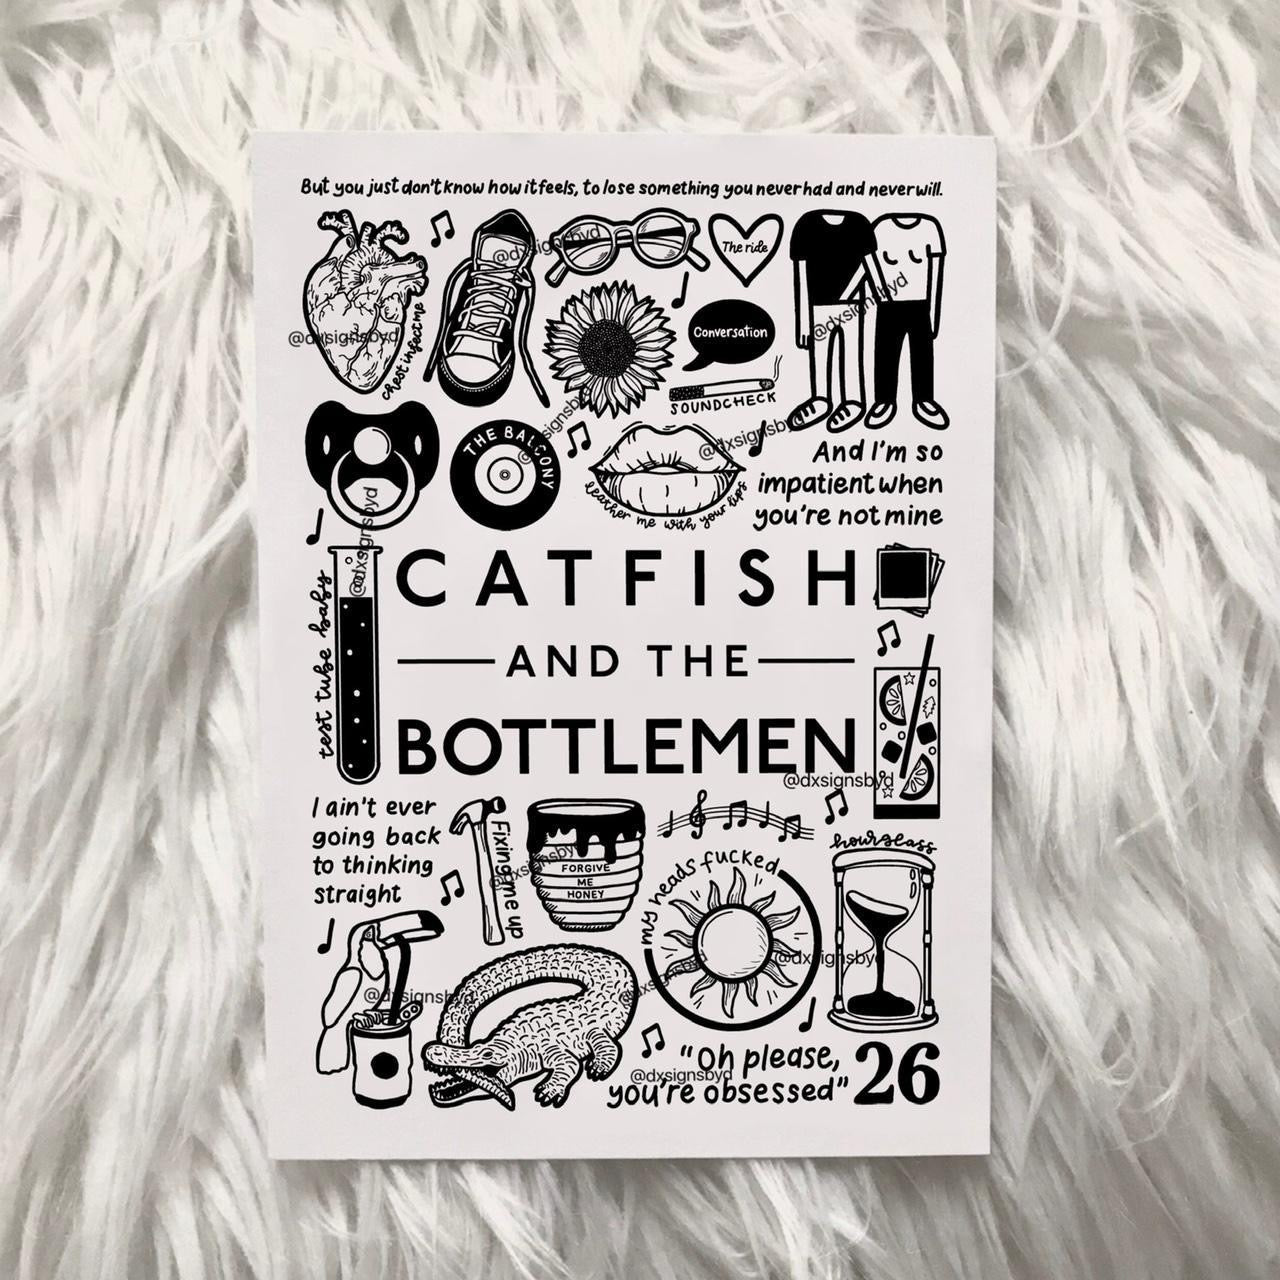 But you just don't know how it feels, to lose something you never had and never will.
@dxsignsbyd
@dxsignsbyd
The ride
@dxsignsbyd
@dxsignsbyd
chest infect me
Conversation
SOUNDCHECK
THE BALCONY
@dxsignsbyd
@dxsignsbyd
leather me with your lips
And I'm so
impatient when
you're not mine
@dxsignsbyd
test tube baby
CATFISH
AND THE
BOTTLEMEN
@dxsignsbyd
I ain't ever
going back
to thinking
straight
Fixing me up
@dxsignsbyd
FORGIVE
ME
HONEY
my heads fucked
hourglass
@dxsignsbyd
@dxsignsbyd
@dxsignsbyd
"Oh please,
you're obsessed"
@dxsignsbyd
26